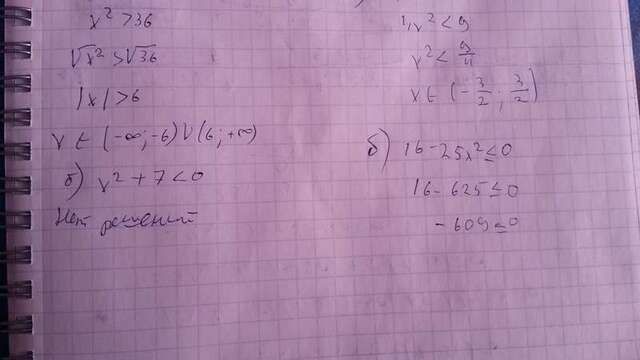 x² > 36
√x² > √36
|x| > 6
x ∈ (-∞; -6) ∪ (6; +∞)
б) x² + 7 < 0
Нет решений
x² < 9
x² < 9/4
x ∈ (-3/2; 3/2)
б) 16 - 25x² ≤ 0
16 - 625 ≤ 0
- 609 ≤ 0